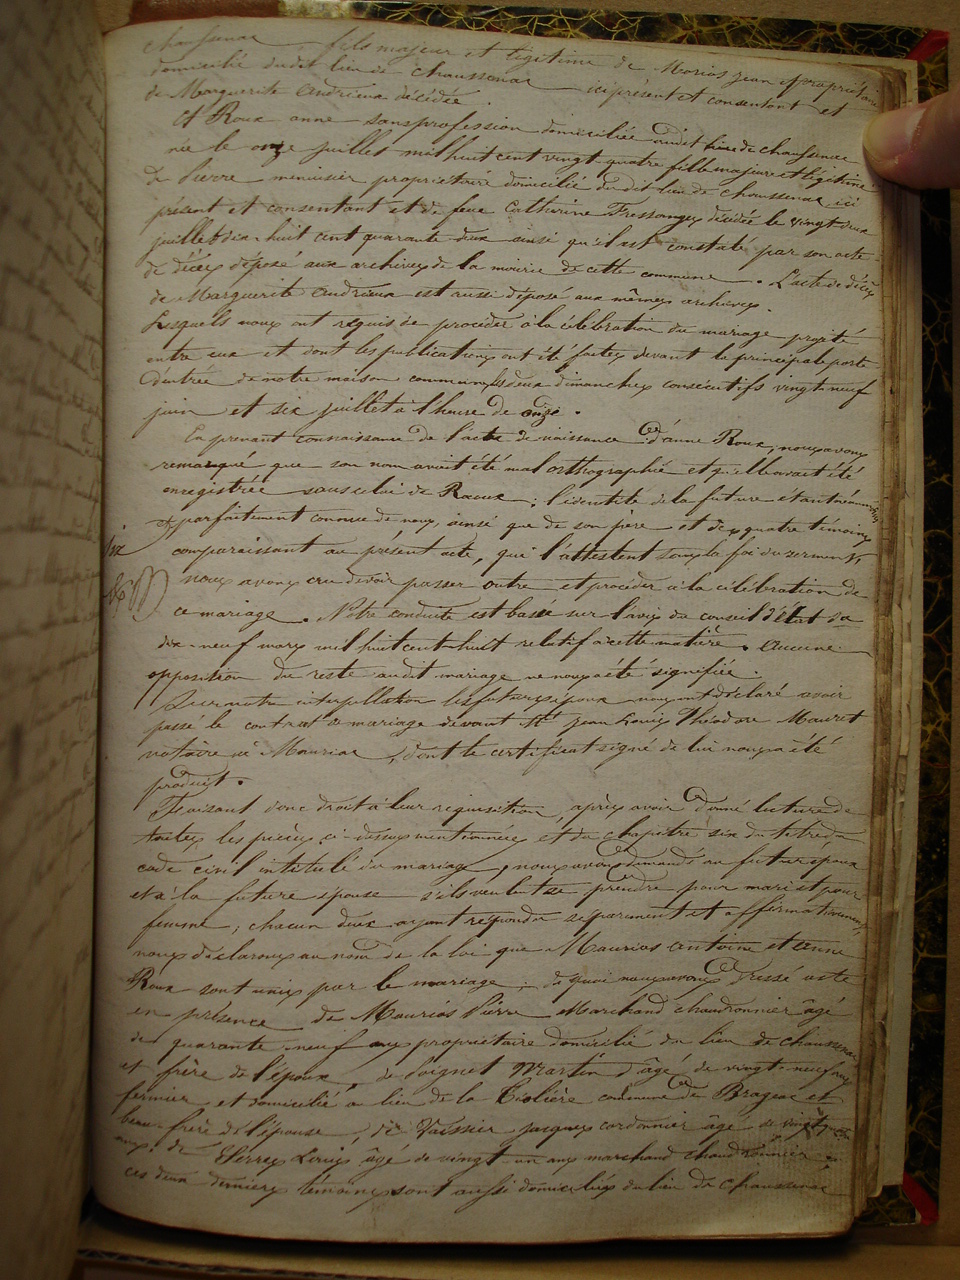 chaussenac fils majeur et légitime de Morias Jean propriétaire
domicilié du dit lieu de chaussenac ici présent et consentant et
de Marguerite Andrieux décédée.
Et Roux anne sans profession domiciliée dudit lieu de chaussenac
née le onze juillet mil huit cent vingt quatre fille majeure et légitime
de Pierre menuisier propriétaire domicilié du dit lieu de chaussenac ici
présent et consentant et de feue Catherine Fressanges décédée le vingt deux
juillet dix-huit cent quarante deux ainsi qu'il est constaté par son acte
de décès déposé aux archives de la mairie de cette commune. L'acte de décès
de Marguerite Andrieux est aussi déposé aux mêmes archives.
Lesquels nous ont requis de procéder à la célébration du mariage projeté
entre eux et dont les publications ont été faites devant la principale porte
d'entrée de notre maison commune les deux dimanches consécutifs vingt-neuf
juin et six juillet à l'heure de onze.
En prenant connaissance de l'acte de naissance d'anne Roux, nous avons
remarqué que son nom avait été mal orthographié et qu'elle avait été
enregistrée sous celui de Raoux : l'identité de la future étant néanmoins
parfaitement connue de nous, ainsi que de son père et des quatre témoins
comparaissant au présent acte, qui l'attestent sous la foi du serment,
nous avons cru devoir passer outre et procéder à la célébration de
ce mariage. Notre conduite est basée sur l'avis du conseil d'état du
dix-neuf mars mil huit cent huit relatif à cette matière. Aucune
opposition du reste audit mariage ne nous a été signifiée.
Sur notre interpellation les futurs époux nous ont déclaré avoir
passé le contrat de mariage devant Me Jean Louis Théodore Mauret
notaire à Mauriac, dont le certificat signé de lui nous a été
produit.
Faisant donc droit à leur réquisition, après avoir donné lecture de
toutes les pièces ci-dessus mentionnées et du chapitre six du titre du
code civil intitulé du mariage, nous avons demandé au futur époux
et à la future épouse s'ils veulent se prendre pour mari et pour
femme, chacun deux ayant répondu séparément et affirmativement,
nous déclarons au nom de la loi que Maurias antoine et anne
Roux sont unis par le mariage ; de quoi nous avons dressé acte
en présence de Maurias Pierre Marchand chaudronnier âgé
de quarante-neuf ans propriétaire domicilié du lieu de chaussenac
et frère de l'époux, de Soignet Martin âgé de vingt-neuf ans
fermier et domicilié a lieu de la commune de Brageac et
beau-frère de l'épouse, de Vaissier jacques cordonnier âgé de vingt
ans, de Louis âgé de vingt un ans marchand chaudronnier ;
ces deux derniers témoins sont aussi domiciliés du lieu de chaussenac